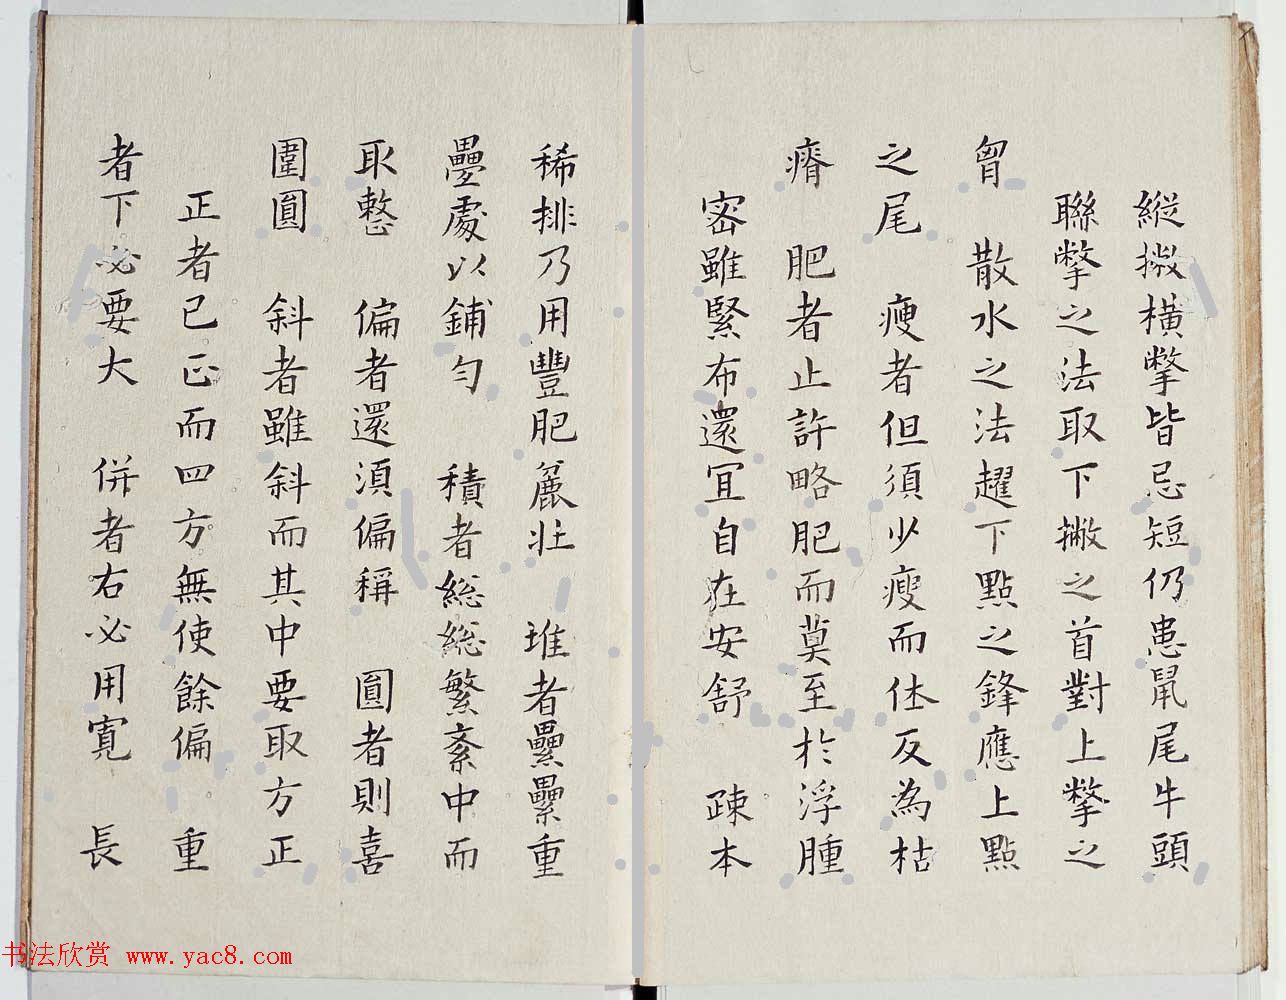 縱撇橫撆皆忌短仍患鼠尾牛頭
聯撆之法取下撇之首對上撆之
胷　散水之法趯下點之鋒應上點
之尾　瘦者但須少瘦而休反為枯
瘠　肥者止許略肥而莫至於浮腫
密雖緊布還宜自在安舒　疎本
稀排乃用豐肥麄壯　堆者纍纍重
疊處以鋪勻　積者総総繁紊中而
取整　偏者還須偏稱　圓者則喜
圍圓　斜者雖斜而其中要取方正
正者已正而四方無使餘偏　重
者下必要大　併者右必用寬　長
书法欣赏 www.yac8.com